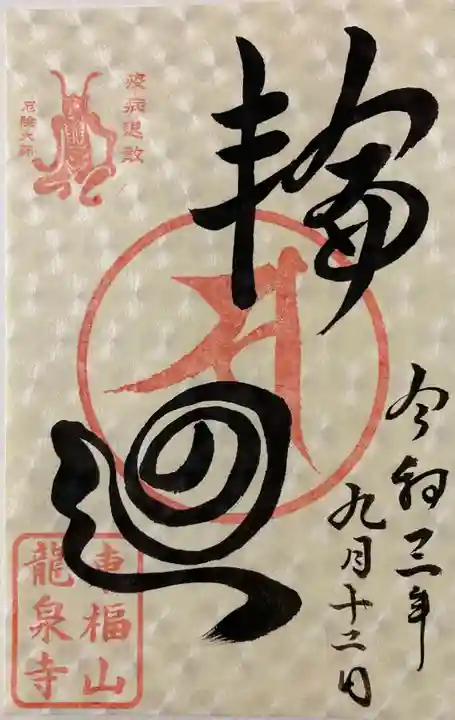 輪廻
令和三年
九月十二日
疫病退散
厄除大師
東福山
龍泉寺